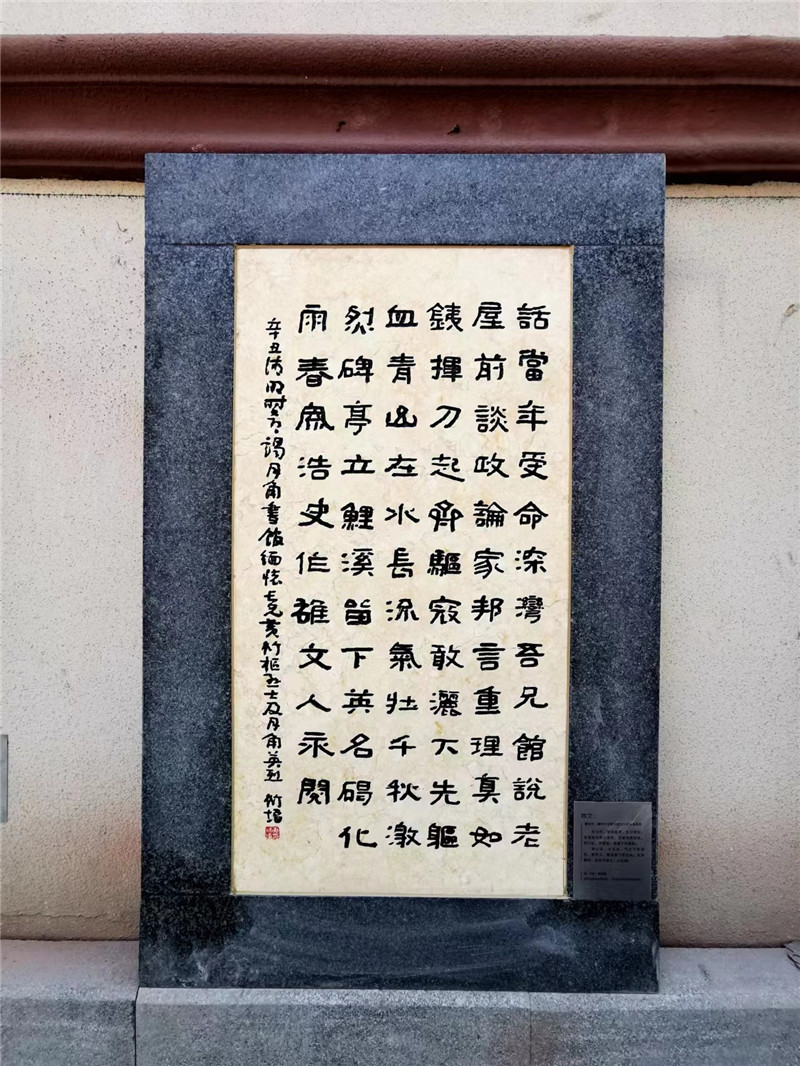 話當年受命深灣吾兄館說老
屋前談政論家邦言重理真如
銕揮刀起齊驅寇敢灑先軀
血青山在水長流氣壯千秋激
烈碑亭立鯉溪留下英名碣化
雨春風浩史作雄文人永閱
辛丑清明謁月角書館緬懷黃竹樞烈士及月角英烈